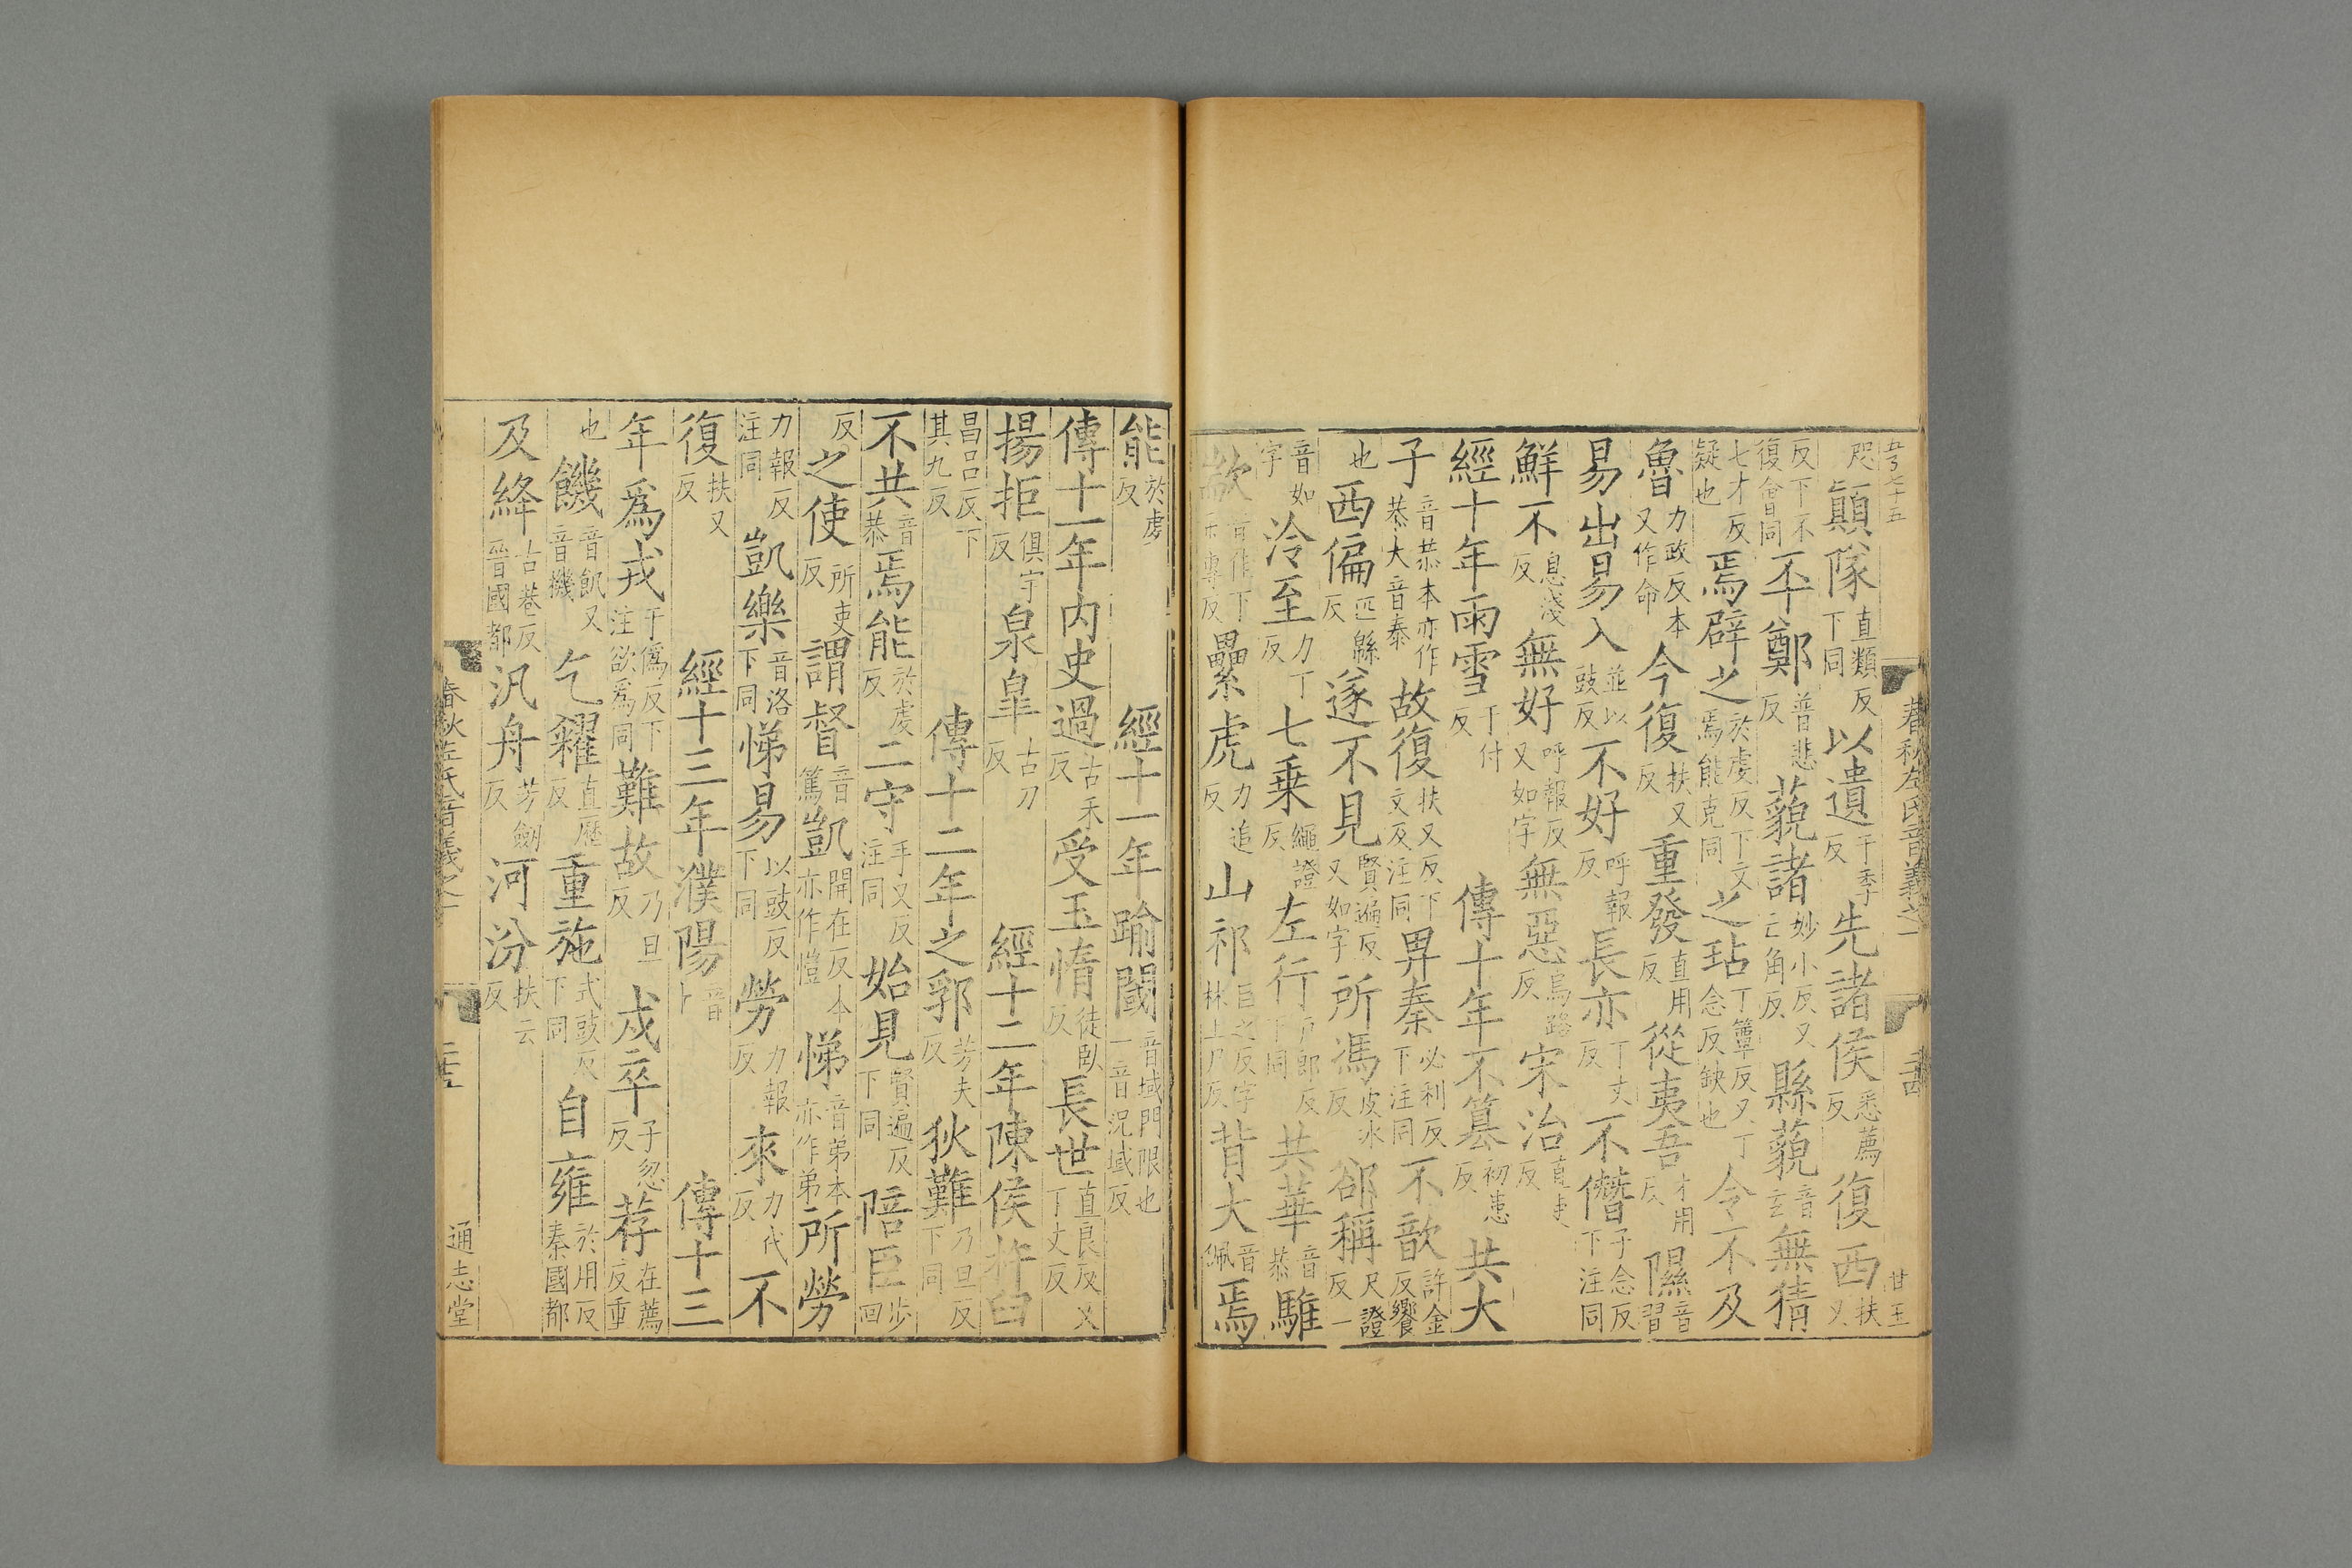 咫顛隊直類反下同以遺于季反先諸侯悉薦反復西扶又
反下不復會同丕鄭普悲反藐諸妙小反又亡角反縣藐音玄無猜
七才反疑也焉辟之於虔反下文焉能克同之玷丁簟反又丁念反缺也令不及
魯力政反本又作命今復扶又反重發直用反從夷吾才用反隰音習
易出易入並以豉反不好呼報反長亦丁丈反不僭子念反下注同
鮮不息淺反無好呼報反又如字無惡烏路反宋治直吏反
經十年雨雪于付反傳十年不篡初患反共大
子音恭本亦作恭大音泰故復扶又反下文及注同畀秦必利反下注同不歆許金反饗
也西偏匹縣反遂不見賢遍反又如字所馮皮冰反郤稱尺證反一
音如字泠至力丁反七乗繩證反左行戶郎反下同共華音恭騅
歂音作下示專反纍虎力追反山祁巨之反字林上尸反背大音佩焉
春秋左氏音義之一
能於虔反經十一年踰閾音域門限也一音況域反
傳十一年内史過古禾反受玉惰徒臥反長世直良反又丁丈反
揚拒俱宇反泉皐古刀反經十二年陳侯杵臼
昌呂反下其九反傳十二年之郛芳夫反狄難乃旦反下同
不共音恭焉能於虔反二守手又反注同始見賢遍反下同陪臣步回
反之使所吏反謂督音篤凱開在反本亦作愷悌音弟本亦作弟所勞
力報反注同凱樂音洛下同悌易以豉反下同勞力報反來力代反不
復扶又反經十三年濮陽音卜傳十三
年爲戎于僞反下注欲爲同難故乃旦反戍卒子忽反荐在薦反重
也饑音飢又音機乞糴直歷反重施式豉反下同自雍於用反秦國都
及絳古巷反晉國都汎舟芳劒反河汾扶云反
春秋左氏音義之一
通志堂